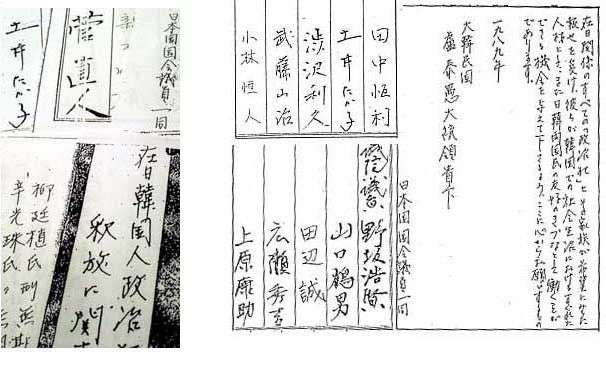 在日関係のすべての「政治犯」とその家族が希望にみちた
報せを受け、彼らが韓国での社会生活におけるすぐれた
人材として、また日韓両国民の友好のきづなとして働くことが
できる機会を与えて下さるよう、ここに心からお願いするもの
であります。
一九八九年
大韓民国
盧泰愚大統領貴下
日本国国会議員一同
田中恒利
土井たか子
渋沢利久
武藤山治
小林恒人
野坂浩賢
山口鶴男
田辺誠
広瀬秀吉
上原康助
日本国国会議員一同
菅直人
土井たか子
在日韓国人政治
釈放に関
柳廷植氏 刑無期
辛光洙氏